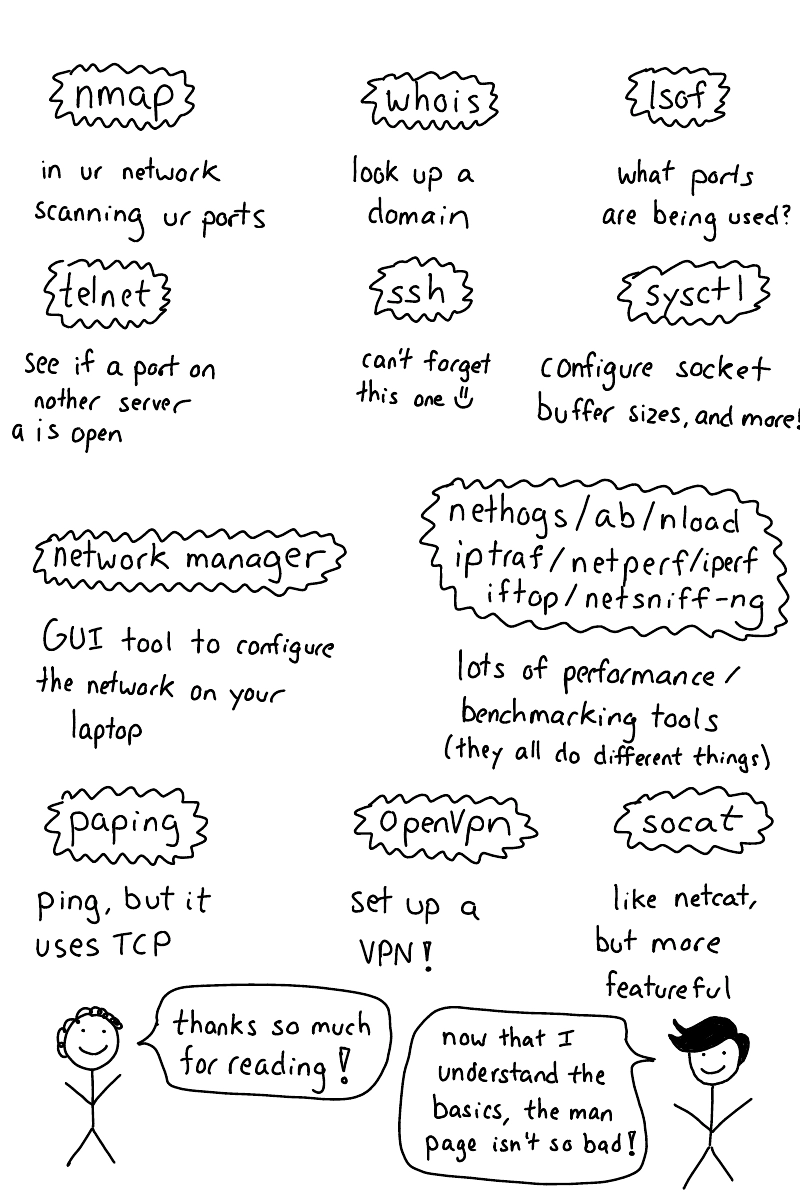 nmap
in ur network
scanning ur ports
whois
look up a
domain
lsof
what ports
are being used?
telnet
see if a port on
nother server
a is open
ssh
can't forget
this one
sysctl
configure socket
buffer sizes, and more!
network manager
GUI tool to configure
the network on your
laptop
nethogs/ab/nload
iptraf/netperf/iperf
iftop/netsniff-ng
lots of performance /
benchmarking tools
(they all do different things)
paping
ping, but it
uses TCP
OpenVpn
set up a
VPN!
socat
like netcat,
but more
featureful
thanks so much
for reading!
now that I
understand the
basics, the man
page isn't so bad!